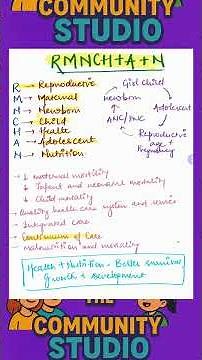 COMMUNITY
STUDIO
RMNCH+A+N
R → Reproductive
M → Maternal
N → Newborn
C → Child
H → Health
A → Adolescent
N → Nutrition
Girl Child
Newborn
Adolescent
ANC/PNC
Reproductive
age +
Pregnancy
→ ↓ maternal mortality
→ ↓ Infant and neonatal mortality
→ ↓ Child mortality
→ Quality health care system and service
→ Integrated care
→ Continuum of Care
→ Malnutrition and mortality
Health + Nutrition - Better survival
Growth + Development
THE
COMMUNITY
STUDIO